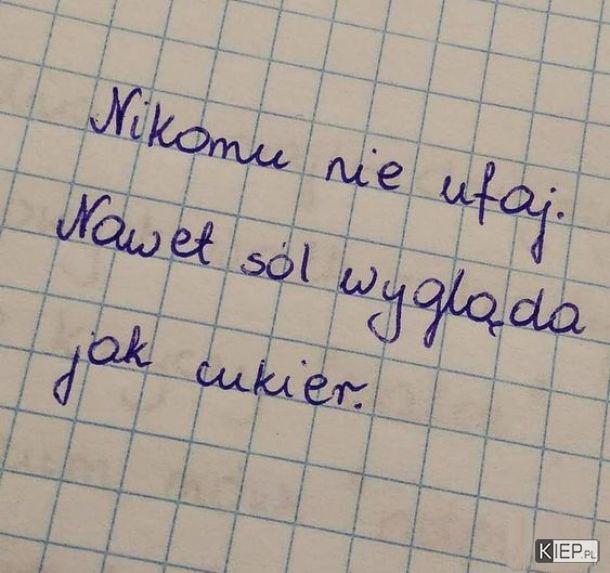 Nikomu nie ufaj.
Nawet sól wygląda
jak cukier.
KIEP.PL